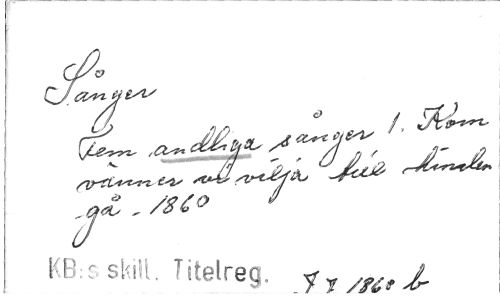 Sånger
Fem andliga sånger 1. Kom
vänner vi vilja till
gå. 1860
KB:s skill. Titelreg.
1860 b